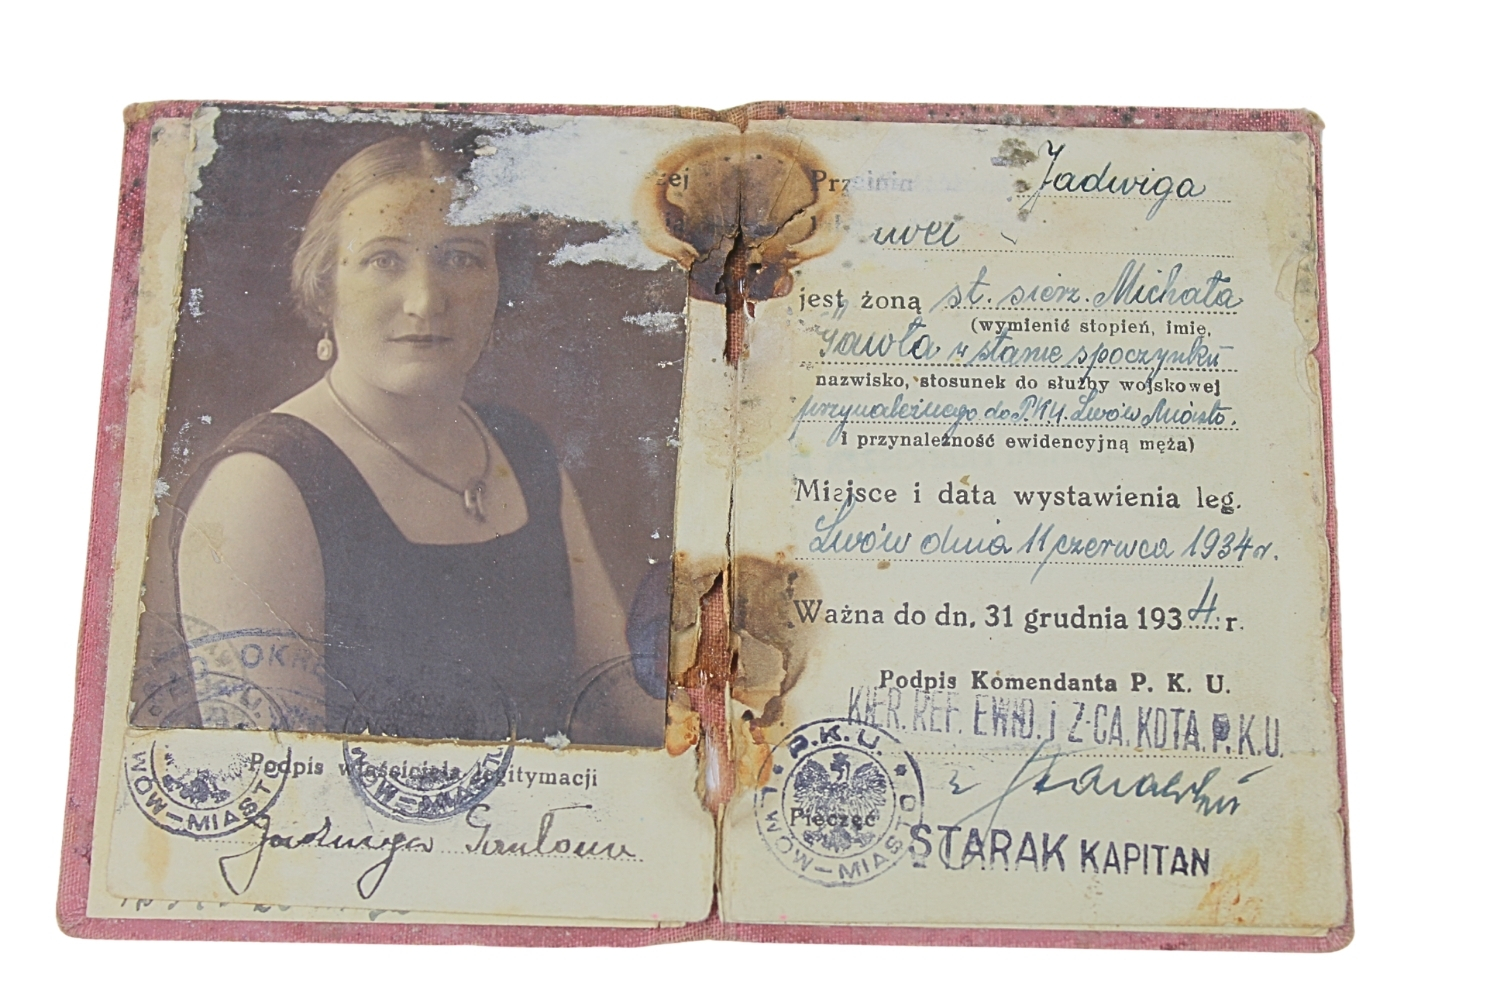 OKRĘ
P.K.U.
LWÓW-MIASTO
LWÓW-MIASTO
Podpis właściciela legitymacji
Jadwiga Gawłowa
ej
Jadwiga
jest żoną st. sierz. Michała
(wymienić stopień, imię,
Gawła w stanie spoczynku
nazwisko, stosunek do służby wojskowej
przynależnego do P.K.U. Lwów Miasto.
i przynależność ewidencyjną męża)
Miejsce i data wystawienia leg.
Lwów dnia 11 czerwca 1934 r.
Ważna do dn. 31 grudnia 1934 r.
Podpis Komendanta P. K. U.
KIER. REF. EWID. i Z-CA. KDTA. P.K.U.
P.K.U.
LWÓW-MIASTO
Pieczęć
STARAK KAPITAN